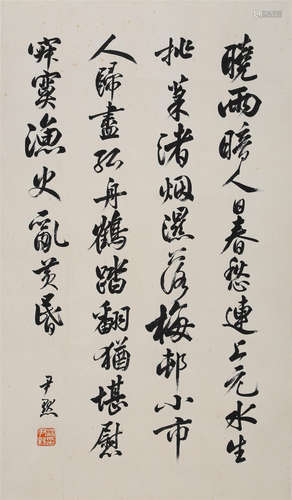 曉雨暗人日春愁連上元水生
挑菜渚烟濕落梅邨小市
人歸盡孤舟鶴踏翻猶堪慰
寂寞漁火亂黄昏
尹默